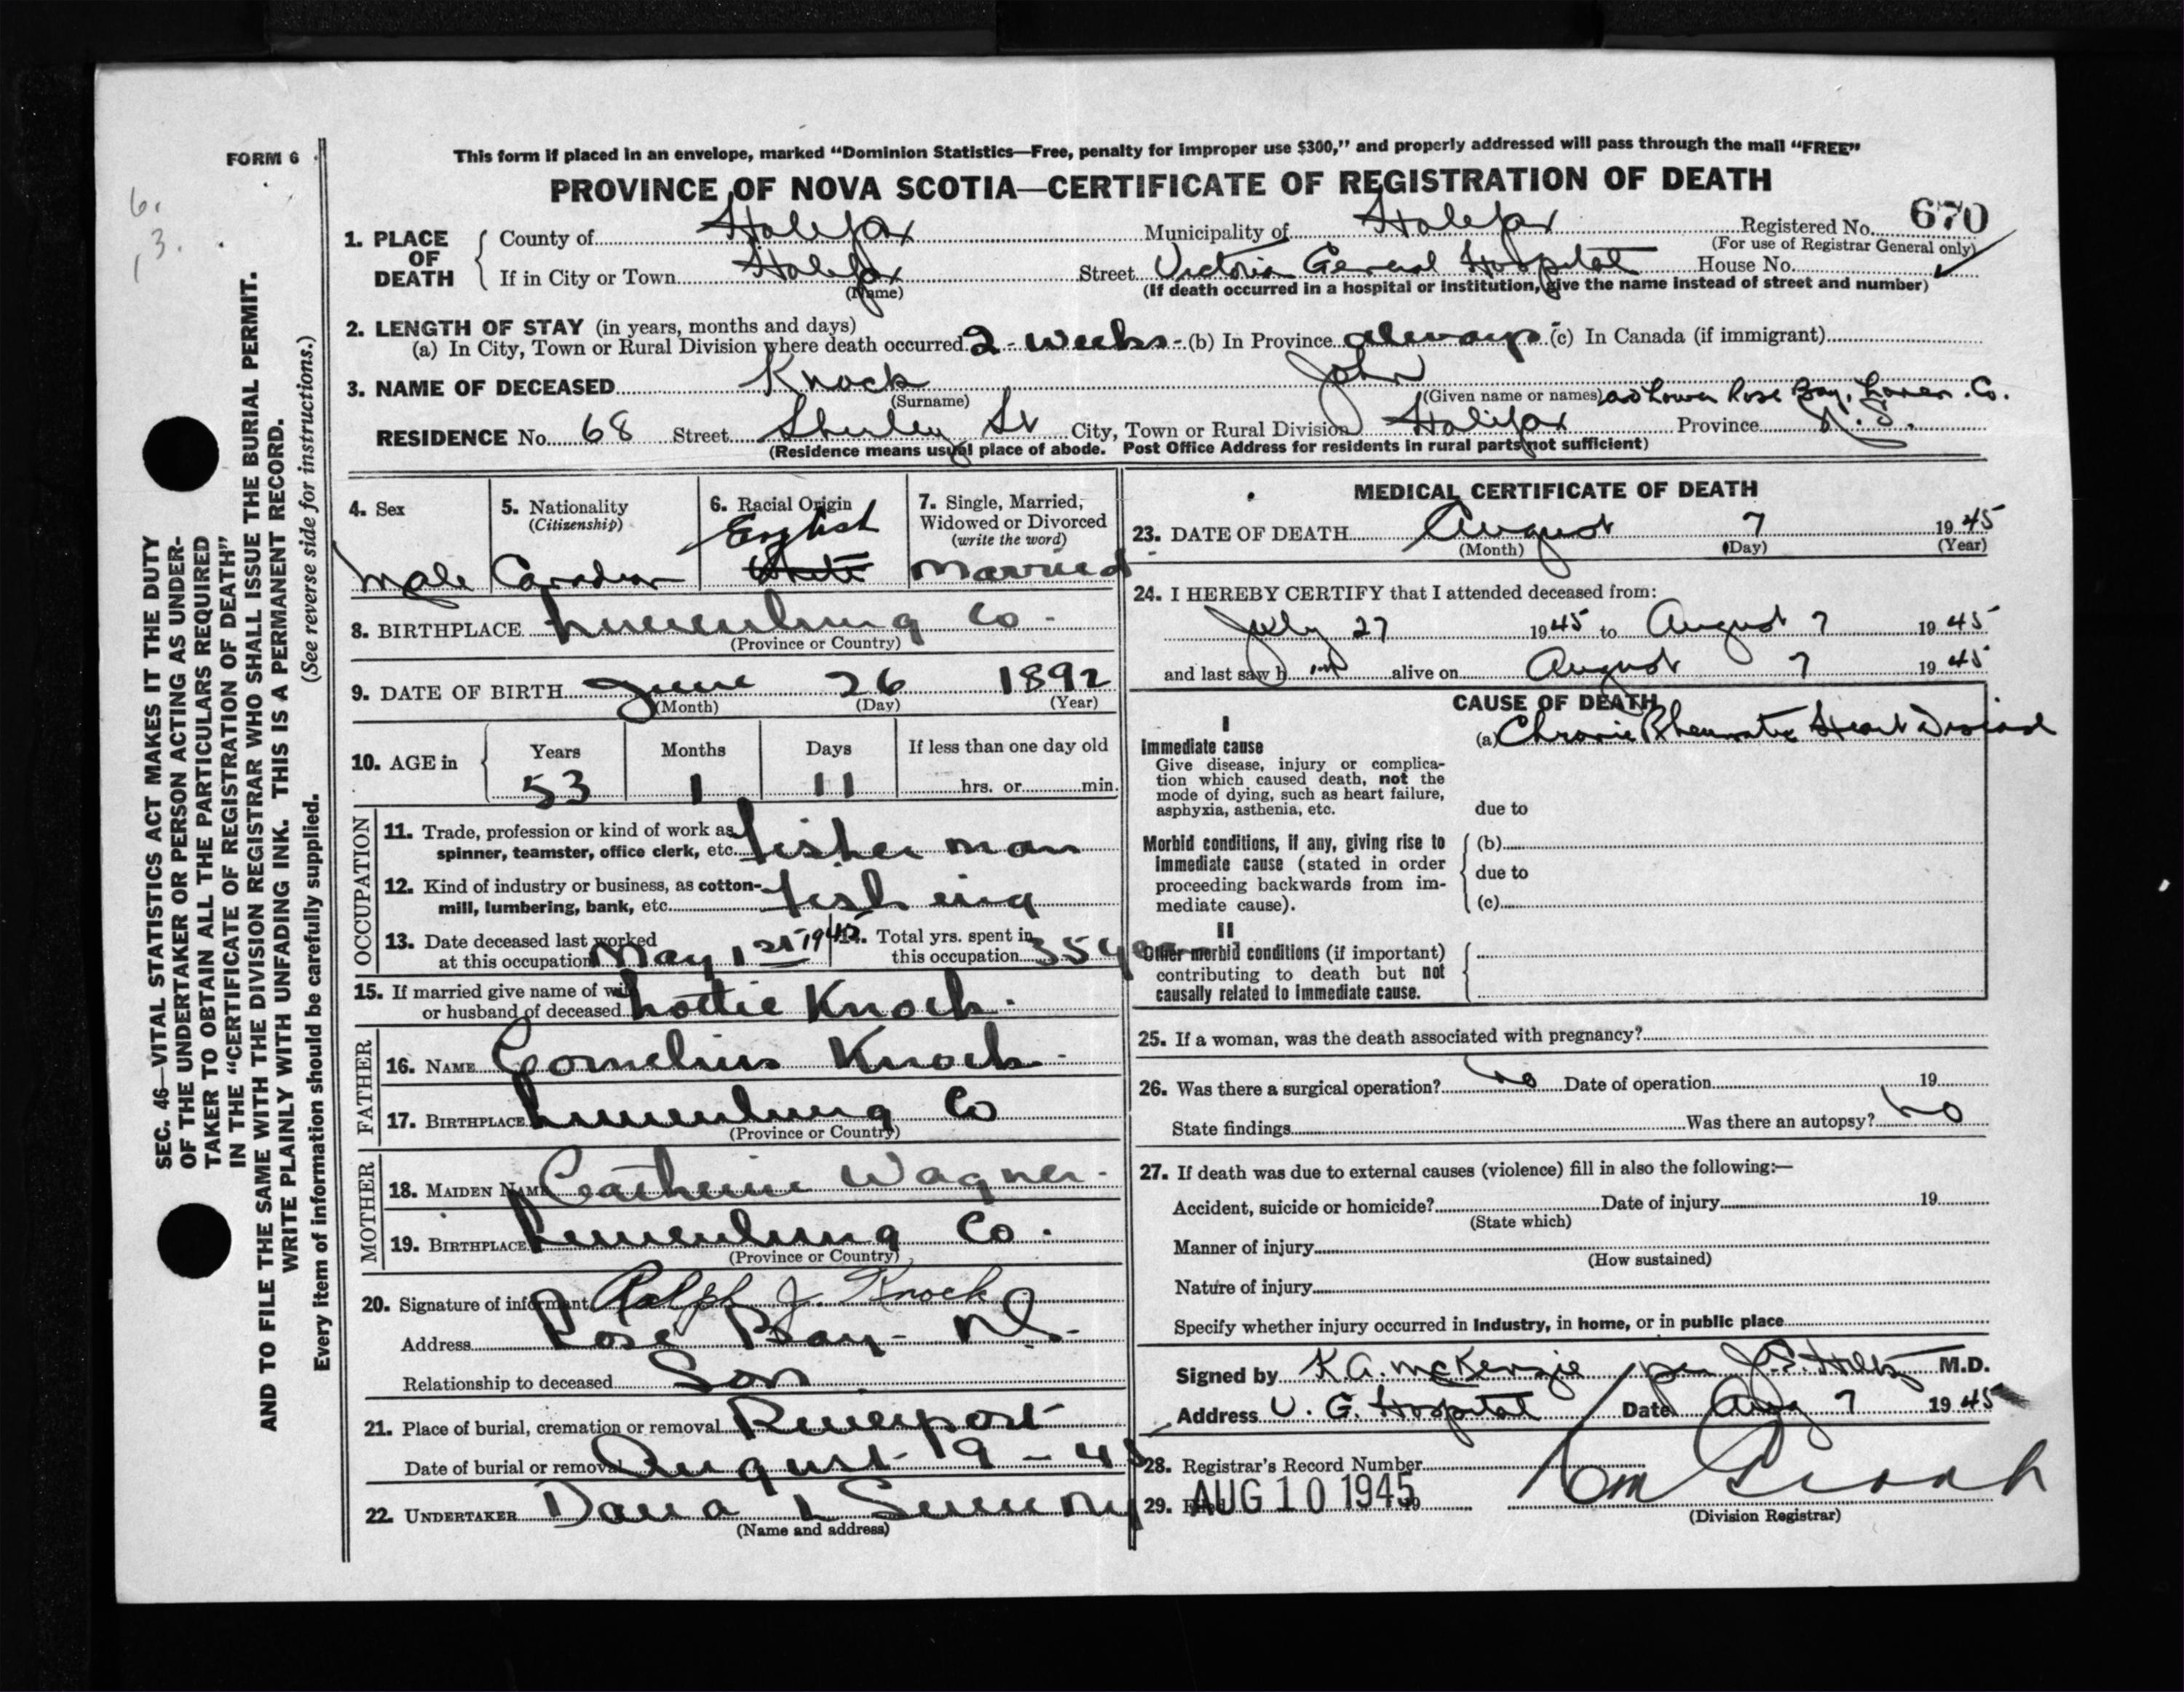 FORM 6
6.
3.
This form if placed in an envelope, marked “Dominion Statistics—Free, penalty for improper use $300,” and properly addressed will pass through the mail “FREE”
PROVINCE OF NOVA SCOTIA—CERTIFICATE OF REGISTRATION OF DEATH
1. PLACE OF DEATH
County of Halifax Municipality of Halifax Registered No. 670
(For use of Registrar General only)
If in City or Town Halifax Street Victoria General Hospital House No.
(Name) (If death occurred in a hospital or institution, give the name instead of street and number)
2. LENGTH OF STAY (in years, months and days)
(a) In City, Town or Rural Division where death occurred 2 - weeks - (b) In Province always (c) In Canada (if immigrant)
3. NAME OF DECEASED Knock John
(Surname) (Given name or names) Lower Rose Bay, Lunen. Co.
RESIDENCE No. 68 Street Shirley St City, Town or Rural Division Halifax Province N.S.
(Residence means usual place of abode. Post Office Address for residents in rural parts not sufficient)
4. Sex
Male
5. Nationality
(Citizenship)
Canadian
6. Racial Origin
English
White
7. Single, Married,
Widowed or Divorced
(write the word)
Married
8. BIRTHPLACE Lunenburg Co -
(Province or Country)
9. DATE OF BIRTH June 26 1892
(Month) (Day) (Year)
10. AGE in
Years Months Days If less than one day old
53 1 11 hrs. or min.
OCCUPATION
11. Trade, profession or kind of work as
spinner, teamster, office clerk, etc. Fisherman
12. Kind of industry or business, as cotton-
mill, lumbering, bank, etc. Fishing
13. Date deceased last worked
at this occupation May 1st 1945
14. Total yrs. spent in
this occupation 35 years
15. If married give name of wife
or husband of deceased Lottie Knock.
FATHER
16. NAME Cornelius Knock -
17. BIRTHPLACE Lunenburg Co
(Province or Country)
MOTHER
18. MAIDEN NAME Catherine Wagner -
19. BIRTHPLACE Lunenburg Co.
(Province or Country)
20. Signature of informant Ralph J. Knock
Address Rose Bay - NS -
Relationship to deceased Son
21. Place of burial, cremation or removal Riverport
Date of burial or removal August 9 - 45
22. UNDERTAKER Dana L Sweeny
(Name and address)
MEDICAL CERTIFICATE OF DEATH
23. DATE OF DEATH August 7 1945
(Month) (Day) (Year)
24. I HEREBY CERTIFY that I attended deceased from:
July 27 1945 to August 7 1945
and last saw him alive on August 7 1945
CAUSE OF DEATH
I
Immediate cause
Give disease, injury or complica-
tion which caused death, not the
mode of dying, such as heart failure,
asphyxia, asthenia, etc.
(a) Chronic Rheumatic Heart Disease
due to
Morbid conditions, if any, giving rise to
immediate cause (stated in order
proceeding backwards from im-
mediate cause).
(b)
due to
(c)
II
Other morbid conditions (if important)
contributing to death but not
causally related to immediate cause.
25. If a woman, was the death associated with pregnancy?
26. Was there a surgical operation? No Date of operation 19
State findings Was there an autopsy? No
27. If death was due to external causes (violence) fill in also the following:—
Accident, suicide or homicide? Date of injury 19
(State which)
Manner of injury
(How sustained)
Nature of injury
Specify whether injury occurred in industry, in home, or in public place
Signed by K.A. McKenzie / per J.E. Hiltz M.D.
Address V. G. Hospital Date Aug 7 1945
28. Registrar's Record Number
29. Filed AUG 10 1945 19
(Division Registrar)
SEC. 46—VITAL STATISTICS ACT MAKES IT THE DUTY
OF THE UNDERTAKER OR PERSON ACTING AS UNDER-
TAKER TO OBTAIN ALL THE PARTICULARS REQUIRED
IN THE “CERTIFICATE OF REGISTRATION OF DEATH”
AND TO FILE THE SAME WITH THE DIVISION REGISTRAR WHO SHALL ISSUE THE BURIAL PERMIT.
WRITE PLAINLY WITH UNFADING INK. THIS IS A PERMANENT RECORD.
Every item of information should be carefully supplied. (See reverse side for instructions.)